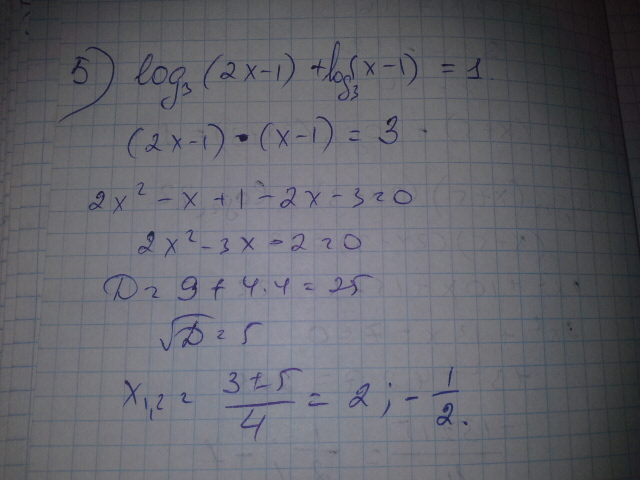 5) log₃(2x-1) + log₃(x-1) = 1.
(2x-1) · (x-1) = 3
2x² - x + 1 - 2x - 3 = 0
2x² - 3x - 2 = 0
D = 9 + 4·4 = 25
√D = 5
x₁,₂ = (3±5)/4 = 2; -1/2.